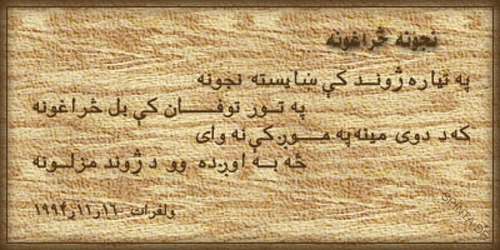 نجونه څراغونه
په تياره ژونـد کې ښايسته نجونه
په تـور توفــان کې بل څراغونه
که د دوی مينه په مـوږ کې نه وای
څه بـه اوږده وو د ژوند مزلـونه
ولفرات ١٦ر١١ر١٩٩٤